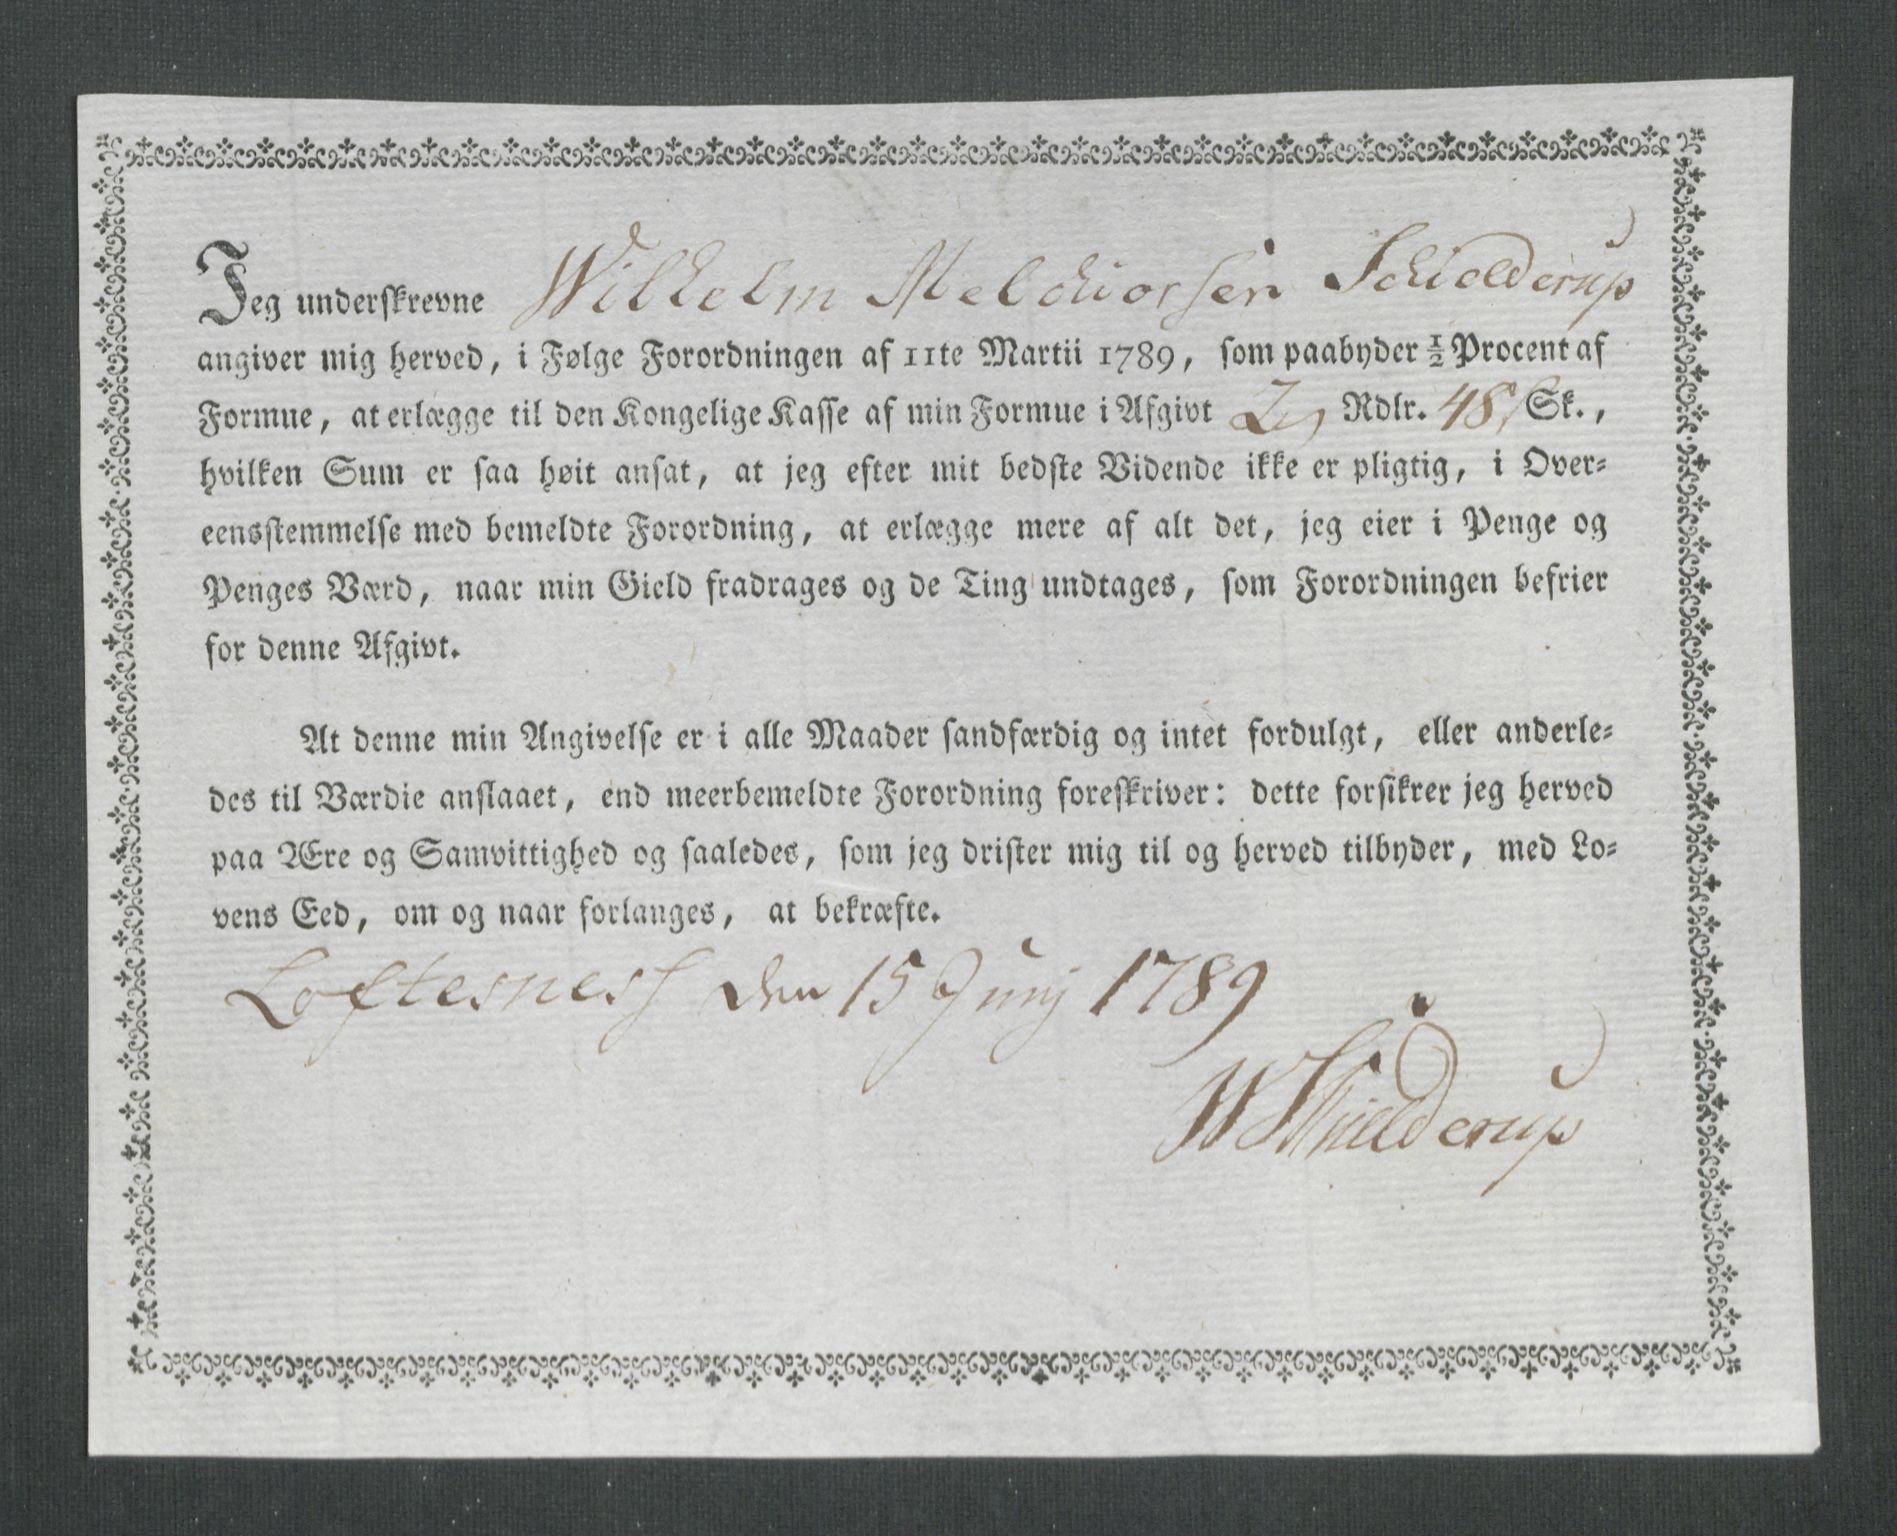 Jeg underskrevne Wilhelm Melchiorsen Schielderup
angiver mig herved, i Følge Forordningen af 11te Martii 1789, som paabyder ½ Procent af
Formue, at erlægge til den Kongelige Kasse af min Formue i Afgivt 2 Rdlr. 48 Sk.,
hvilken Sum er saa høit ansat, at jeg efter mit bedste Vidende ikke er pligtig, i Over-
eensstemmelse med bemeldte Forordning, at erlægge mere af alt det, jeg eier i Penge og
Penges Værd, naar min Gield fradrages og de Ting undtages, som Forordningen befrier
for denne Afgivt.
At denne min Angivelse er i alle Maader sandfærdig og intet fordulgt, eller anderle-
des til Værdie anslaaet, end meerbemeldte Forordning foreskriver: dette forsikrer jeg herved
paa Ære og Samvittighed og saaledes, som jeg drister mig til og herved tilbyder, med Lo-
vens Eed, om og naar forlanges, at bekræfte.
Loftesness den 15 Junj 1789
W Schielderup